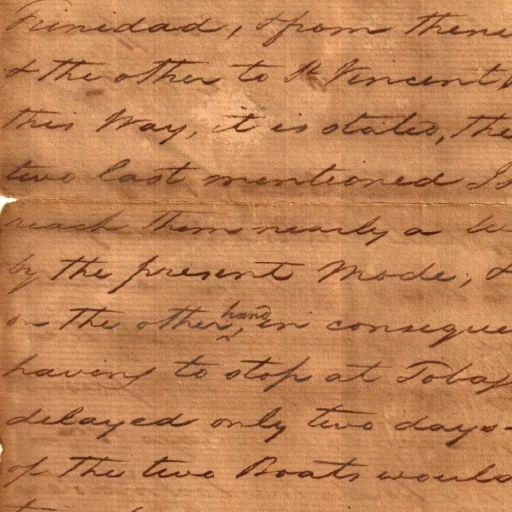 Trinidad, & from thence
& the other to St Vincent
this Way, it is stated, the
two last mentioned
reach them nearly a
by the present Mode; &
on the other hand, in conseque
having to stop at Tobag
delayed only two days-
of the two Boats would